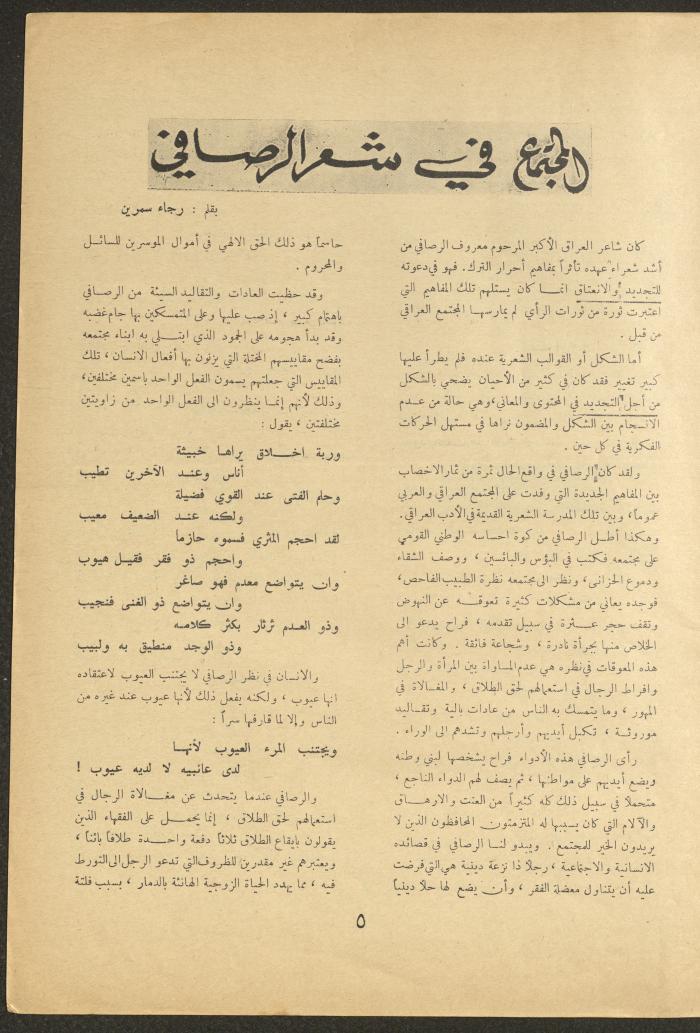 المجتمع في شعر الرصافي
بقلم : رجاء سمرين
كان شاعر العراق الأكبر المرحوم معروف الرصافي من
أشد شعراء عهده تأثراً بمفاهيم أحرار الترك. فهو في دعوته
للتجديد والانعتاق انمـا كان يستلهم تلك المفاهيم التي
اعتبرت ثورة من ثورات الرأي لم يمارسـها المجتمع العراقي
من قبل .
أما الشكل أو القوالب الشعرية عنده فلم يطرأ عليها
كبير تغيير فقد كان في كثير من الأحيان يضحي بالشكل
من أجل التجديد في المحتوى والمعاني،وهي حالة من عـدم
الانسجام بين الشكل والمضمون نراها في مستهل الحركات
الفكرية في كل حين .
ولقد كان الرصافي في واقع الحال ثمرة من ثمار الاخصاب
بين المفاهيم الجديدة التي وفدت على المجتمع العراقي والعربي
عموماً، وبين تلك المدرسة الشعرية القديمة في الأدب العراقي.
وهكذا أطـل الرصافي من كوة احساسه الوطني القومي
على مجتمعه فكتب في البؤس والبائسين ، ووصف الشقاء
ودموع الحزانى، ونظر الى مجتمعه نظرة الطبيب الفاحص،
فوجده يعاني من مشكلات كثيرة تعوقـه عن النهوض
وتقف حجر عـثرة في سبيل تقدمه ، فراح يدعو الى
الخلاص منها بجرأة نادرة ، وشجاعة فائقة . وكانت أهم
هذه المعوقات في نظره هي عدم المساواة بين المرأة والرجل
وافراط الرجال في استعمالهم لحق الطلاق ، والمغـالاة في
المهور ، وما يتمسك به الناس من عادات بالية وتقـاليد
موروثـة ، تكبل أيديهم وأرجلهم وتشدهم الى الوراء .
رأى الرصافي هذه الأدواء فراح يشخصها لبني وطنه
ويضع أيديهم على مواطنها ، ثم يصف لهم الدواء الناجع ،
متحملاً في سبيل ذلك كله كثيراً من العنت والارهـاق
والآلام التي كان يسببها له المتزمتون المحافظون الذين لا
يريدون الخير للمجتمع . ويبدو لنـا الرصافي في قصائده
الانسانية والاجتماعية ، رجلاً ذا نزعة دينية هي التي فرضت
عليه أن يتناول معضلة الفقر ، وأن يضع لها حلاً دينياً
حاسماً هو ذلك الحق الالهي في أموال الموسرين للسائـل
والمحروم .
وقد حظيت العادات والتقاليد السيئة من الرصافي
باهتمام كبير ، إذ صب عليها وعلى المتمسكين بها جام غضبه
وقد بدأ هجومه على الجمود الذي ابتـلي به ابناء مجتمعه
بفضح مقاييسهم المختلة التي يزنون بها أفعال الانسان ، تلك
المقاييس التي جعلتهم يسمون الفعل الواحد باسمين مختلفين،
وذلك لأنهم إنمـا ينظرون الى الفعل الواحد من زاويتين
مختلفتين ، يقول :
وربة اخـلاق يراهـا خبيثة
أناس وعنـد الآخرين تطيب
وحلم الفتى عند القوي فضيلة
ولكنه عنـد الضعيف معيب
لقد احجم المثري فسموه حازما
واحجم ذو فقر فقيـل هيوب
وان يتواضع معدم فهو صاغر
وان يتواضع ذو الغنى فنجيب
وذو العـدم ثرثار بكثر كلامـه
وذو الوجد منطيق به ولبيب
والانسان في نظر الرصافي لا يجتنب العيوب لاعتقاده
انها عيوب ، ولكنه يفعل ذلك لأنها عيوب عند غيره من
الناس وإلا لما قارفها سراً :
ويجتنب المرء العيوب لأنهـا
لدى عائبيه لا لديه عيوب !
والرصافي عندما يتحدث عن مغـالاة الرجال في
استعمالهم لحق الطلاق ، إنما يحمـل على الفقهاء الذين
يقولون بايقاع الطلاق ثلاثاً دفعة واحـدة طلاقاً بائناً ،
ويعتبرهم غير مقدرين للظروف التي تدعو الرجل الى التورط
فيه ، مما يهدد الحياة الزوجية الهانئة بالدمار ، بسبب فلتة
٥